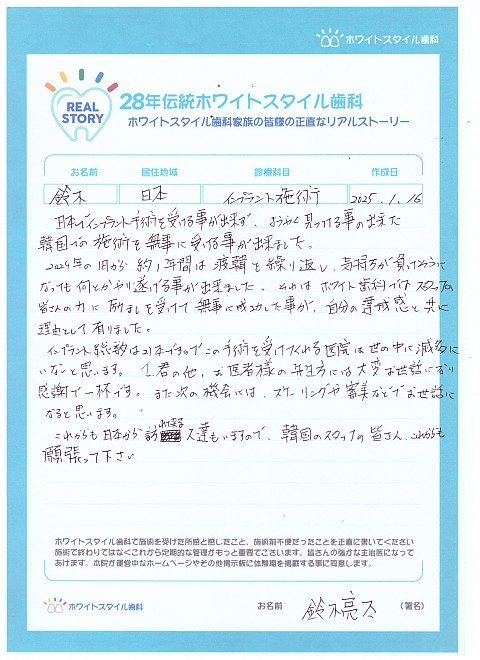 ホワイトスタイル歯科
REAL
STORY
28年伝統ホワイトスタイル歯科
ホワイトスタイル歯科家族の皆様の正直なリアルストーリー
お名前 居住地域 診療科目 作成日
鈴木 日本 インプラント施術 2025.1.16
日本でインプラント手術を受ける事が出来ず、ようやく見つける事の出来た
韓国での施術を無事に受ける事が出来ました。
2024年の1月から約1年間は渡韓を繰り返し、気持ちが負けそうに
なっても何とかやり遂げる事が出来ました。それはホワイト歯科ではスタッフの
皆さんの力に励ましを受けて無事に成功した事が、自分の達成感と共に
理由として有りました。
インプラント総数は21本ですのでこの手術を受けてくれる医院は世の中に滅多に
いないと思います。の他、お医者様の先生方には大変お世話になり
感謝で一杯です。また次の機会には、スケーリングや審美などでお世話に
なると思います。
これからも日本から訪れて来る人達もいますので、韓国のスタッフの皆さん、これからも
頑張って下さい
ホワイトスタイル歯科で施術を受けた所感と感じたこと、施術前不便だったことを正直に書いてください
施術で終わりではなくこれから定期的な管理がもっと重要でございます。皆さんの強がな主治医になって
あげます。本院が運営中なホームページやその他掲示板に体験期を掲載する事に同意します。
ホワイトスタイル歯科 お名前 鈴木亮太 (署名)